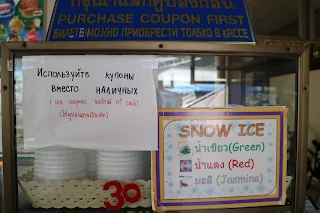 กรุณาแลกคูปองก่อน
PURCHASE COUPON FIRST
БИЛЕТЫ МОЖНО ПРИОБРЕСТИ ТОЛЬКО В КАССЕ
Используйте купоны
вместо наличных
(use coupons instead of cash)
SNOW ICE
น้ำเขียว (Green)
น้ำแดง (Red)
มะลิ (Jasmine)
30